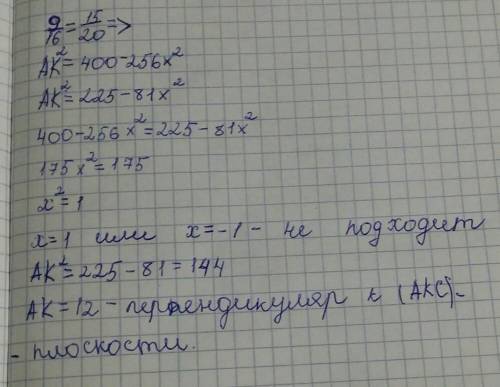 9/16 = 15/20 =>
AK² = 400 - 256x²
AK² = 225 - 81x²
400 - 256x² = 225 - 81x²
175x² = 175
x² = 1
x = 1 или x = -1 - не подходит
AK² = 225 - 81 = 144
AK = 12 - перпендикуляр к (AKC) -
- плоскости.